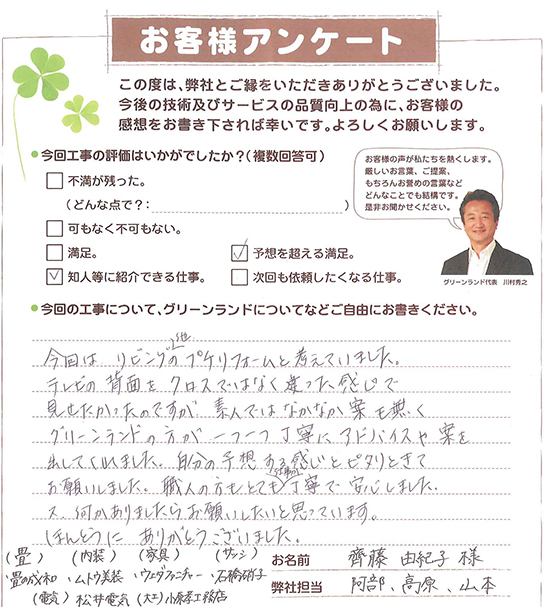 お客様アンケート
この度は、弊社とご縁をいただきありがとうございました。
今後の技術及びサービスの品質向上の為に、お客様の
感想をお書き下されば幸いです。よろしくお願いします。
●今回工事の評価はいかがでしたか?(複数回答可)
不満が残った。
(どんな点で?: )
可もなく不可もない。
満足。
予想を超える満足。
知人等に紹介できる仕事。
次回も依頼したくなる仕事。
お客様の声が私たちを熱くします。
厳しいお言葉、ご提案、
もちろんお誉めの言葉など
どんなことでも結構です。
是非お聞かせください。
グリーンランド代表 川村秀之
●今回の工事について、グリーンランドについてなどご自由にお書きください。
今回は リビングのプチリフォームと考えていました。
テレビの背面を クロスではなく 違った感じで
見せたかったのですが 素人では なかなか案も無く
グリーンランドの方が 一つ一つ 丁寧に アドバイスや 案を
出してくれました。自分の予想する感じとピタリときて
お願いしました。職人の方も とても 仕事が 丁寧で 安心しました。
又、何かありましたらお願いしたいと思っています。
ほんとうに ありがとうございました。
(畳) (内装) (家具) (サッシ)
・ムトウ美装 ・ウエダファニチャー ・石橋硝子
(電気) 松井電気 (大工) 小原孝工務店
お名前 齊藤 由紀子 様
弊社担当 阿部、高原、山本